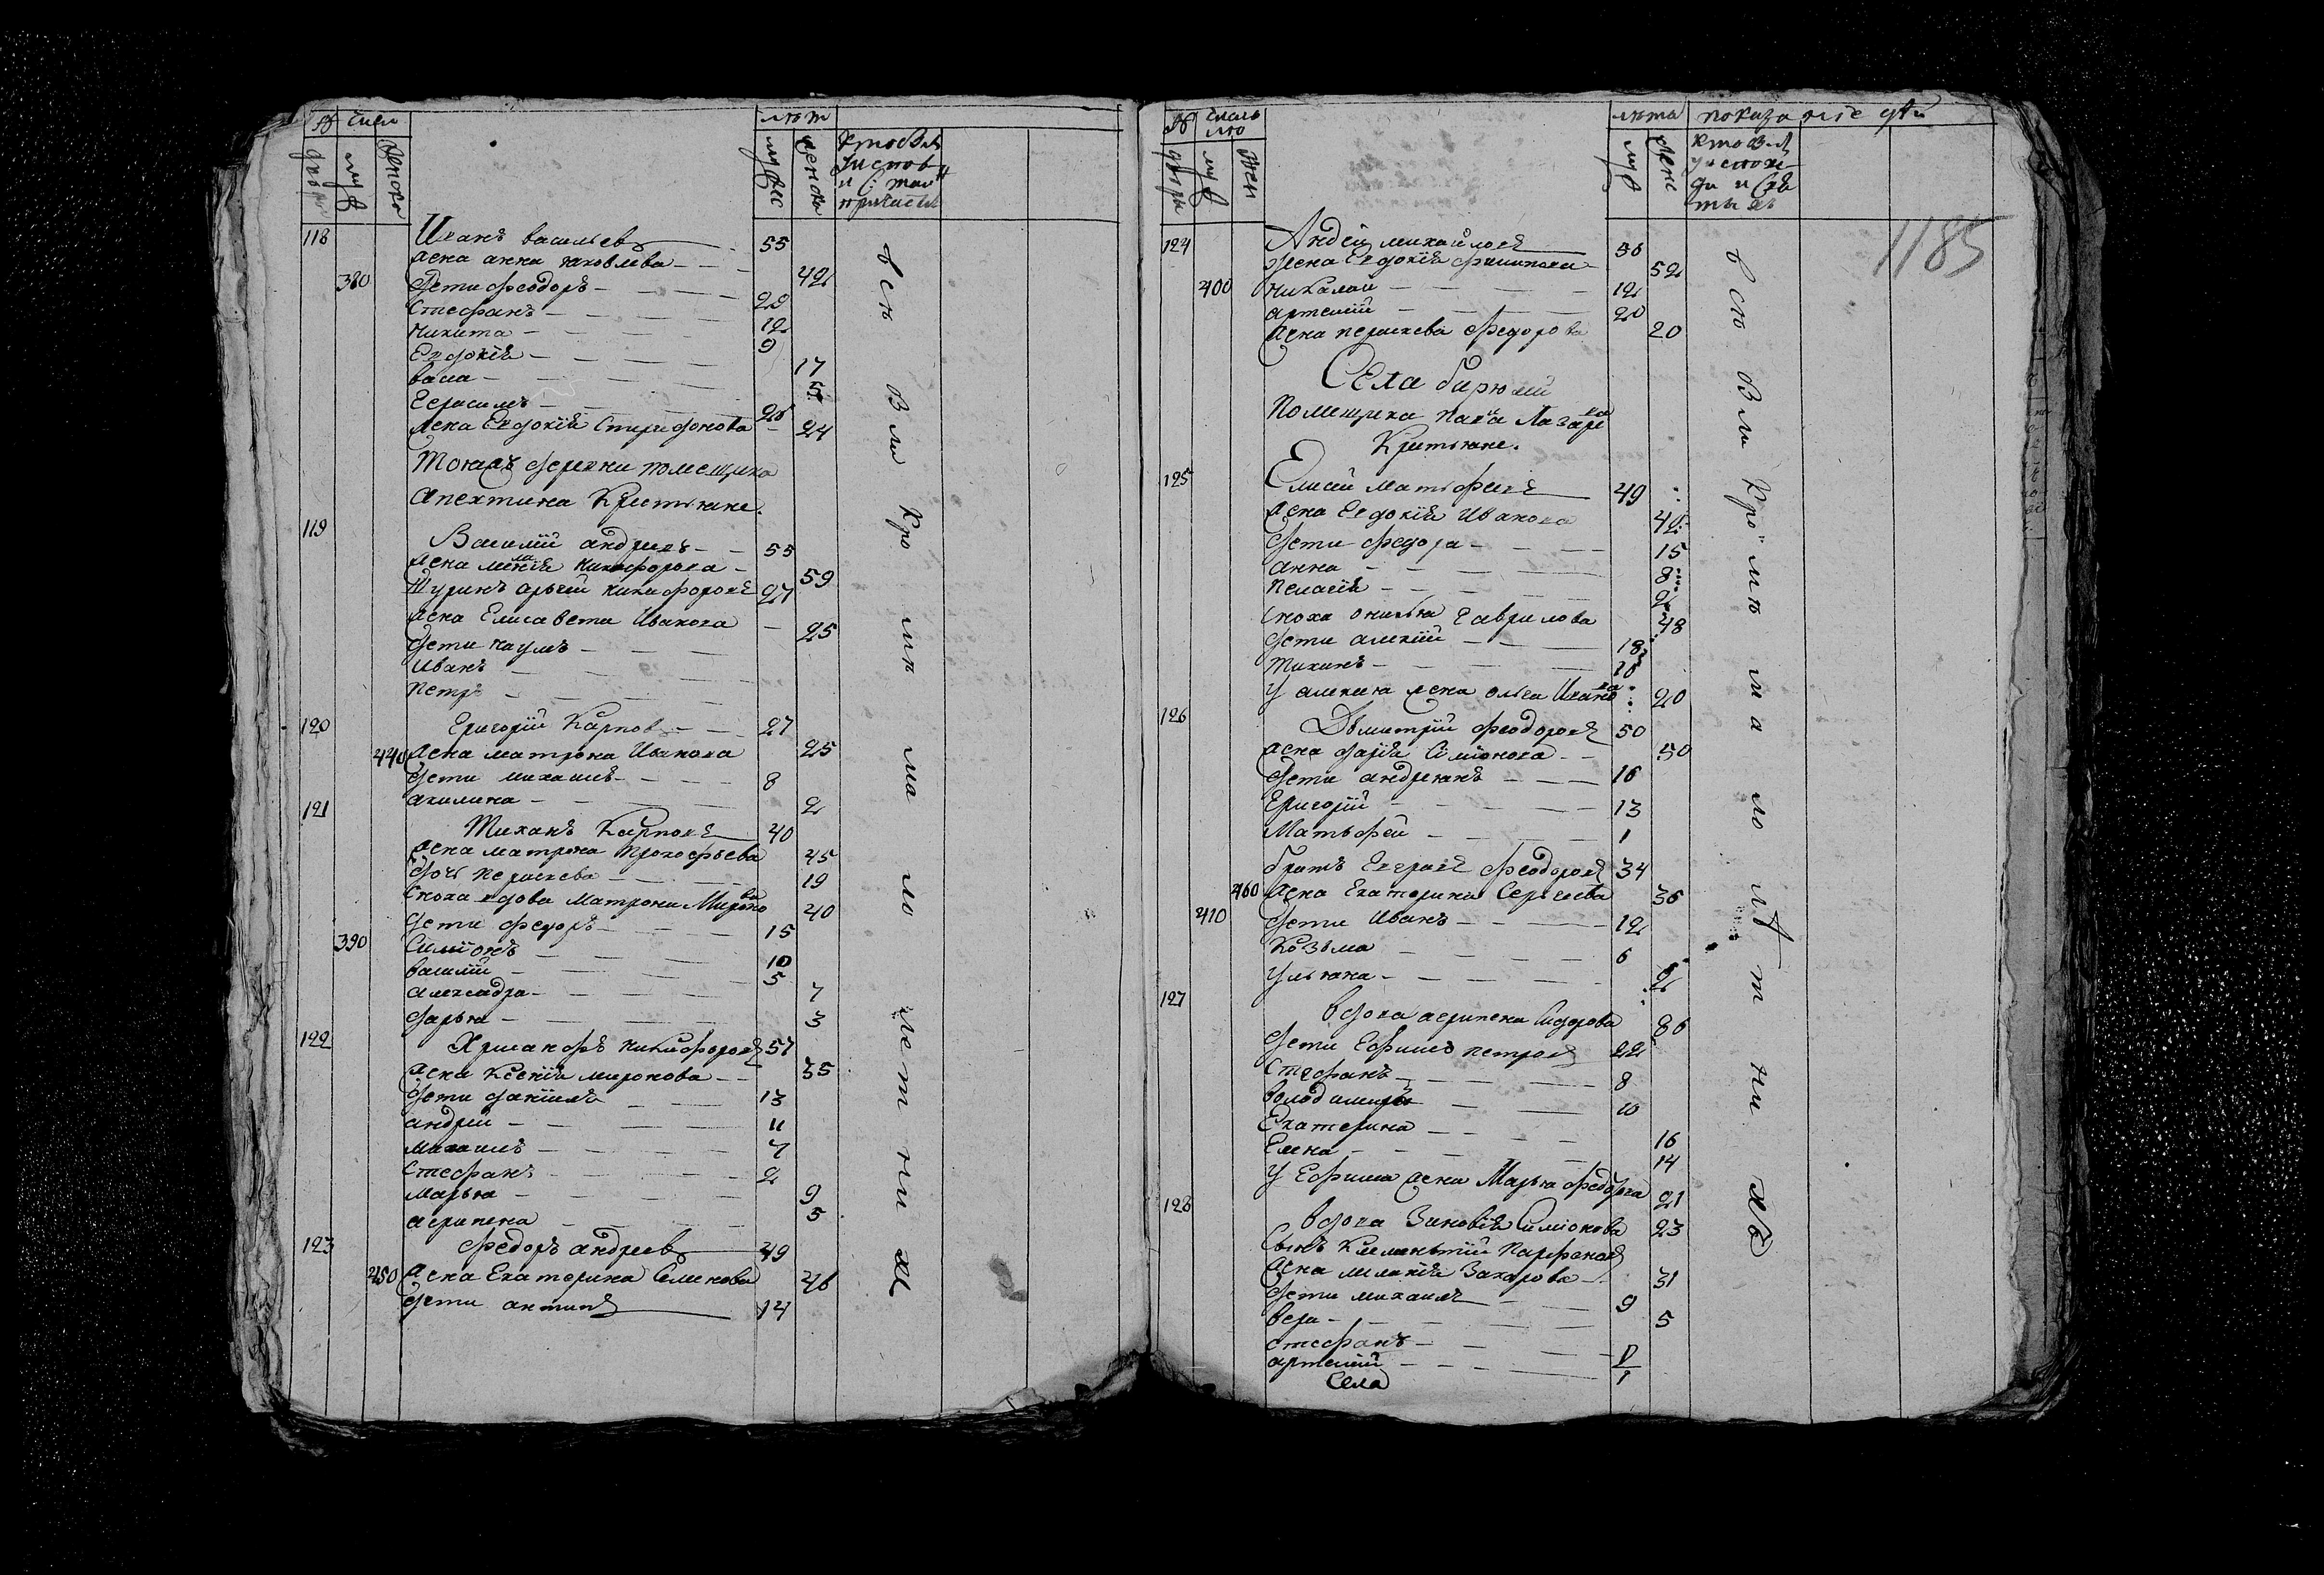 № числ лѣт
дворы муж женска мужес женска
118 Иванъ васильевъ 55
жена анна яковлева 42
380 дѣти феодоръ 20
Стефанъ 12
никита 9
Евдокія 17
васа 5
Герасимъ 25
жена Евдокія Спиридонова 24
Тояжъ деревни помещика
апехтина Крестьяне.
119
Василій андреевъ 55
жена меланія никифорова 59
Шуринъ никифоровъ 27
жена Елисавета Иванова 25
дѣти наумъ
Иванъ
Петръ
120 Григорій Карповъ 27
440 жена матрона Иванова 25
дѣти михаилъ 8
акилина 2
121
Тиханъ Карповъ 40
жена матрона Прокофьева 45
дочь Параскева 19
Сноха вдова Матрона Миронова 40
дѣти федоръ 15
390 Симіонъ 10
василій 5
александра 7
дарья 3
122 Хрисанфъ никифоровъ 57
жена Ксенія миронова 35
дѣти даніилъ 13
андрей 11
михаилъ 7
Стефанъ 2
марья 9
агрипена 5
123 Федоръ андреевъ 49
450 жена Екатерина Семенова 46
дѣти антипъ 14
всѣ Вли Кро мѣ ма ло лет ни хъ
№ число лѣта показаніе
дворы муж жен муж женс
1185
124 Андрей михайловъ 56
жена Евдокія филипова 52
400 николай 12
артемій 20
жена параскева Федорова 20
Села бирюлей
Помещика Лазарева
Крестьяне.
125 Елисей матьфеевъ 49
жена Евдокія Иванова 42
дѣти федора 15
анна 8
Пелагія 2
сноха Гаврилова 48
дѣти алексій 18
Тихинъ 10
у алексия жена ольга Иванова 20
126
Дьмитрій феодоровъ 50
жена дарія Симіонова 50
дѣти андреянъ 16
Григорій 13
Матьфей 1
братъ Евграфъ феодоровъ 34
460 жена Екатерина Сергеева 36
410 дѣти Иванъ 12
Козьма 6
ульяна 2
127
вдова агрипена Сидорова 86
дѣти Ефимъ петровъ 22
Стефанъ 8
володимиръ 10
Екатерина 16
Елена 14
у Ефима жена Марья федорова 21
128
вдова Зиновія Симіонова 23
Сынъ Клементій Парфеновъ
жена меланія Захарова 31
дѣти михаилъ 9
вера 5
стефанъ
артемій 1
Села
всѣ Вли Кро мѣ ма ло лѣт ни хъ